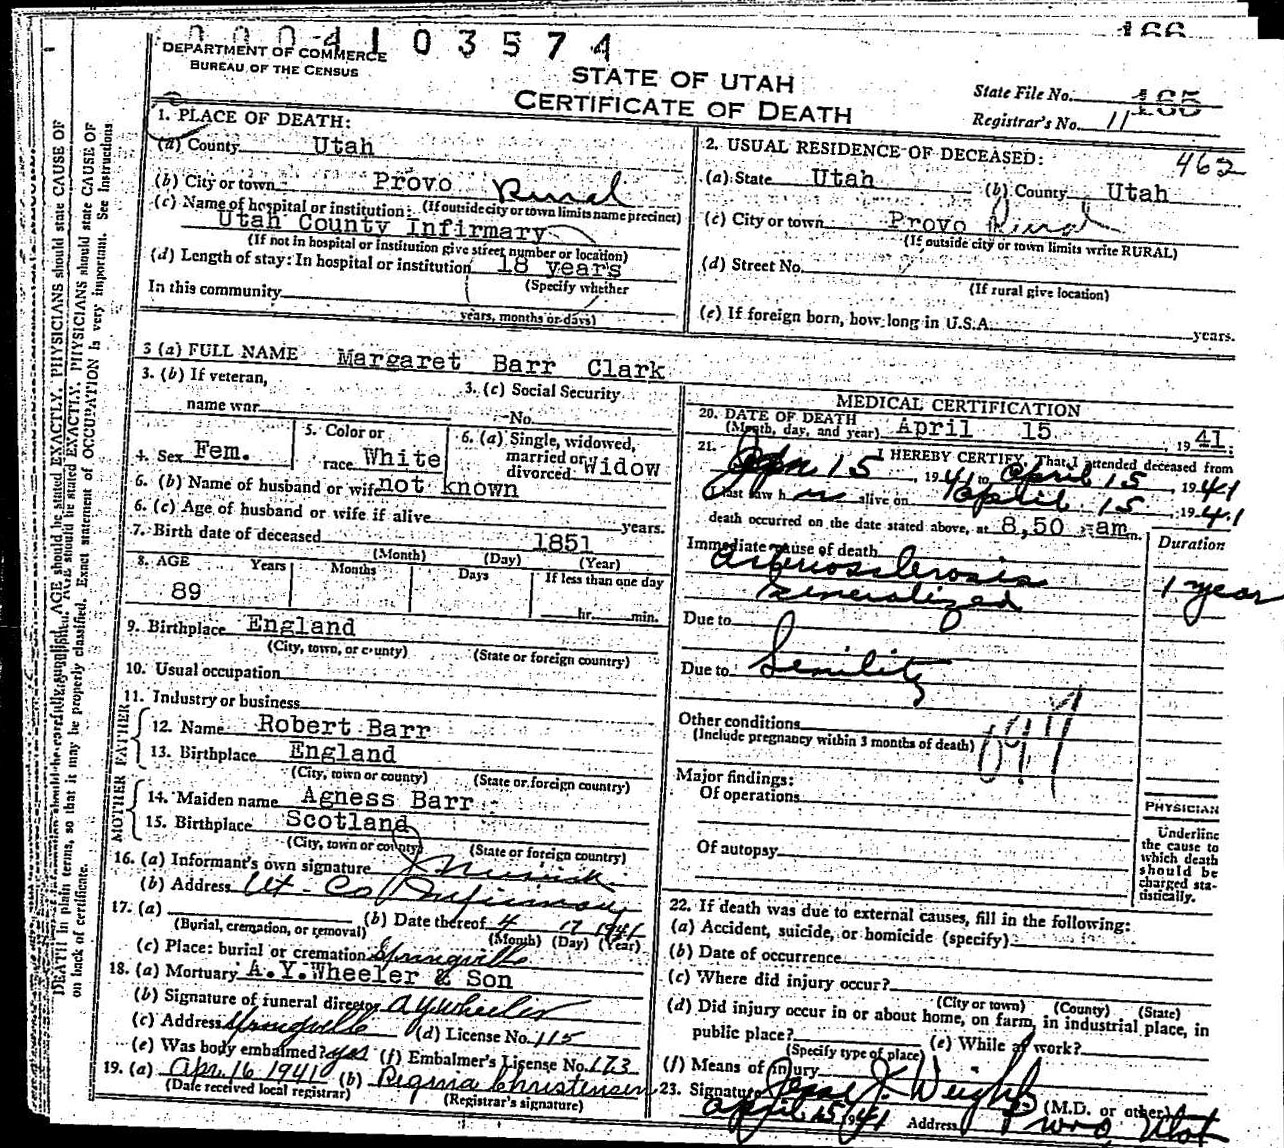 0 0 0 4 1 0 3 5 7 4
166
DEPARTMENT OF COMMERCE
BUREAU OF THE CENSUS
STATE OF UTAH
CERTIFICATE OF DEATH
State File No. 165
Registrar's No. 11
1. PLACE OF DEATH:
(a) County Utah
(b) City or town Provo Rural
(If outside city or town limits name precinct)
(c) Name of hospital or institution:
Utah County Infirmary
(If not in hospital or institution give street number or location)
(d) Length of stay: In hospital or institution 18 years
(Specify whether
In this community
years, months or days)
2. USUAL RESIDENCE OF DECEASED:
462
(a) State Utah (b) County Utah
(c) City or town Provo Rural
(If outside city or town limits write RURAL)
(d) Street No.
(If rural give location)
(e) If foreign born, how long in U.S.A. years.
3 (a) FULL NAME Margaret Barr Clark
3. (b) If veteran,
name war
3. (c) Social Security
No.
4. Sex Fem.
5. Color or
race White
6. (a) Single, widowed,
married or
divorced Widow
6. (b) Name of husband or wife not known
6. (c) Age of husband or wife if alive years.
7. Birth date of deceased 1851
(Month) (Day) (Year)
8. AGE Years Months Days If less than one day
89 hr. min.
9. Birthplace England
(City, town, or county) (State or foreign country)
10. Usual occupation
11. Industry or business
FATHER
12. Name Robert Barr
13. Birthplace England
(City, town or county) (State or foreign country)
MOTHER
14. Maiden name Agness Barr
15. Birthplace Scotland
(City, town or county) (State or foreign country)
16. (a) Informant's own signature
(b) Address Ut. Co Infirmary
17. (a) (b) Date thereof 4 17 1941
(Burial, cremation, or removal) (Month) (Day) (Year)
(c) Place: burial or cremation Springville
18. (a) Mortuary A.Y.Wheeler & Son
(b) Signature of funeral director A Y Wheeler
(c) Address Springville (d) License No. 115
(e) Was body embalmed? yes (f) Embalmer's License No. 173
19. (a) Apr 16 1941 (b) Regina Christensen
(Date received local registrar) (Registrar's signature)
MEDICAL CERTIFICATION
20. DATE OF DEATH
(Month, day, and year) April 15, 1941.
21. I HEREBY CERTIFY, That I attended deceased from
15, 1941 to April 15, 1941
I last saw h er alive on April 15, 1941
death occurred on the date stated above, at 8,50 am m.
Duration
Immediate cause of death
Arteriosclerosis
Generalized
1 year
Due to
Due to Senility
Other conditions
(Include pregnancy within 3 months of death)
Major findings:
Of operations
Of autopsy
PHYSICIAN
Underline
the cause to
which death
should be
charged sta-
tistically.
22. If death was due to external causes, fill in the following:
(a) Accident, suicide, or homicide (specify)
(b) Date of occurrence
(c) Where did injury occur?
(City or town) (County) (State)
(d) Did injury occur in or about home, on farm, in industrial place, in
public place? (e) While at work?
(Specify type of place)
(f) Means of injury
23. Signature Jesse J. Weight (M.D. or other)
April 15 1941 Address Provo Utah
AGE should be stated EXACTLY. PHYSICIANS should state CAUSE OF
DEATH in plain terms, so that it may be properly classified. Exact statement of OCCUPATION is very important. See Instructions
on back of certificate.